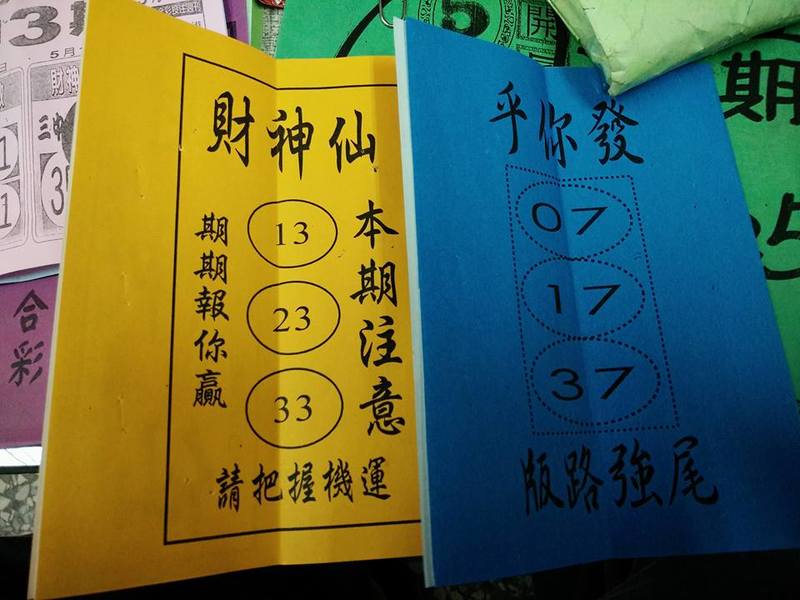 財神仙
本期注意
13
23
33
期期報你贏
請把握機運
乎你發
07
17
37
版路強尾
合彩
3期
5月
財神
三中
期
開